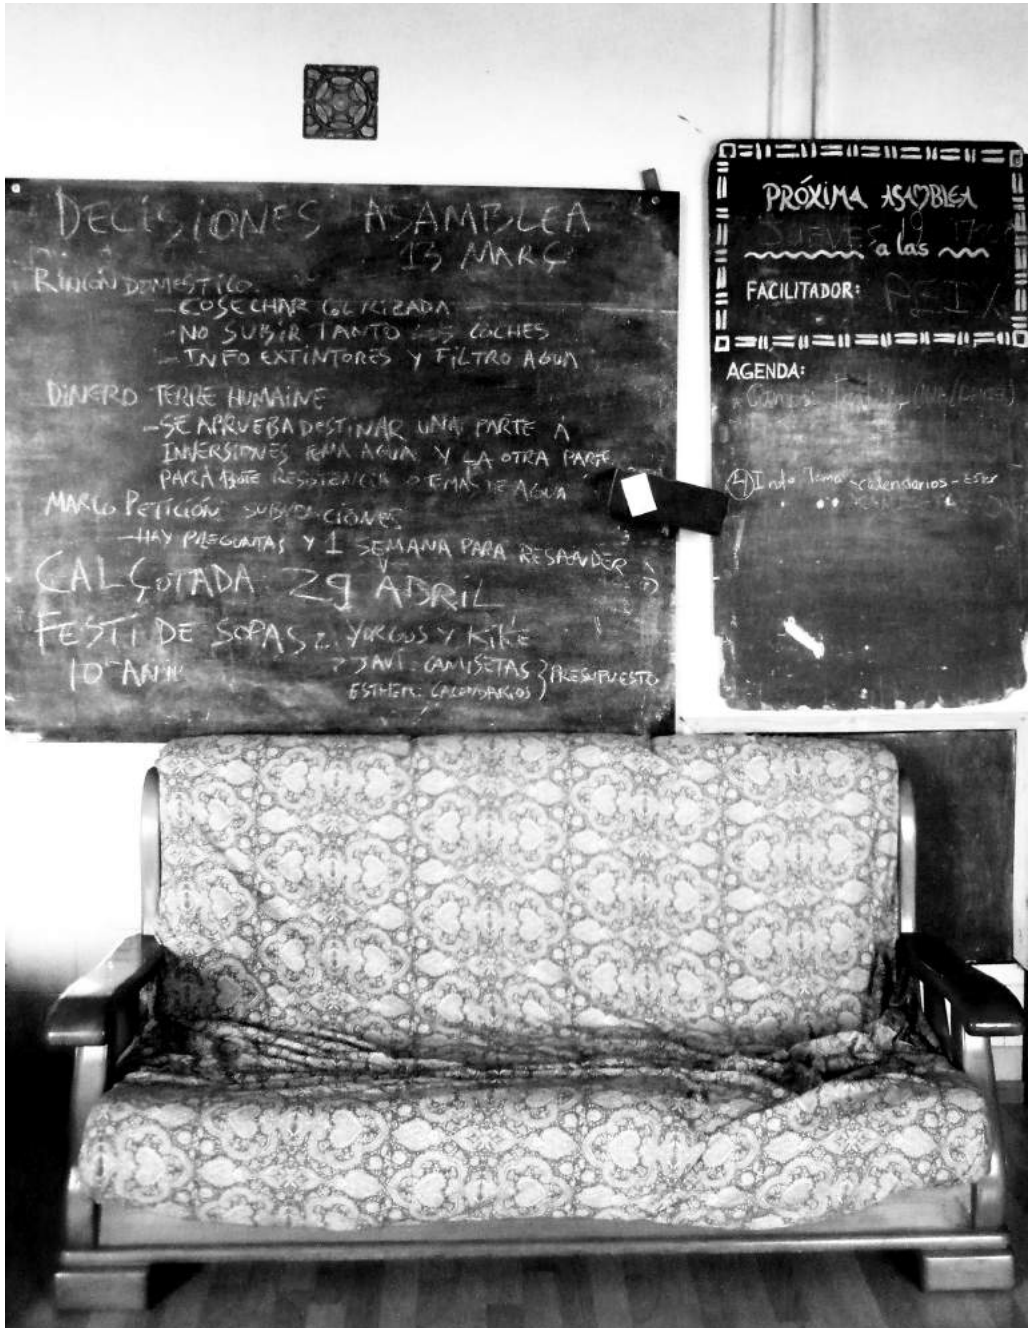 DECISIONES ASAMBLEA
13 MARÇ
RINCÓN DOMESTICO
- COSECHAR
- NO SUBIR TANTO LOS COCHES
- INFO EXTINTORES Y FILTRO AGUA
DINERO TERRE HUMAINE
- SE APRUEBA DESTINAR UNA PARTE A
INVERSIONES TEMA AGUA Y LA OTRA PARTE
PARA RESIDENCIA O TEMAS DE AGUA
MARCO PETICIÓN SUBVENCIONES
- HAY PREGUNTAS Y 1 SEMANA PARA RESPONDER
CALÇOTADA 29 ABRIL
FESTI DE SOPAS YORGUS Y KIKE
10º JAVI: CAMISETAS } PRESUPUESTO
ESTHER: CALENDARIOS
PRÓXIMA ASAMBLEA
JUEVES a las
FACILITADOR: PEIX
AGENDA:
4 Info Tema calendarios - Ester